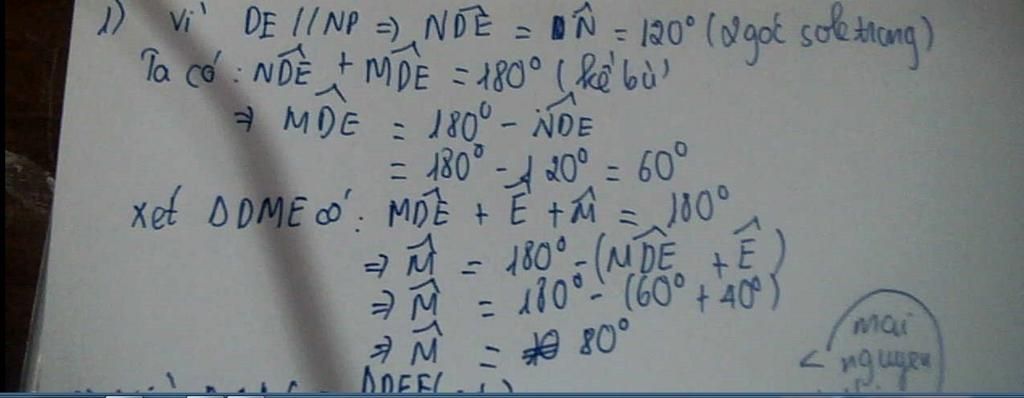 1) Vì DE // NP => NDE^ = N^ = 120° (2 góc sole trong)
Ta có: NDE^ + MDE^ = 180° (kề bù)
=> MDE^ = 180° - NDE^
= 180° - 120° = 60°
xét ΔDME có: MDE^ + E^ + M^ = 180°
=> M^ = 180° - (MDE^ + E^)
=> M^ = 180° - (60° + 40°)
=> M^ = 80°
mai
< nguyen